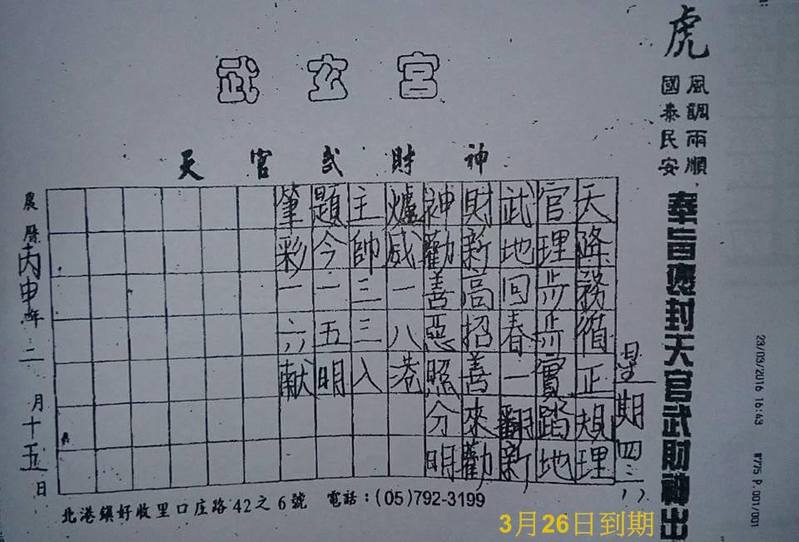 虎
風調雨順
國泰民安
奉旨褒封天官武財神出
武玄宮
天官武財神
星期四
天降務循正規理
官理步步實踏地
武地回春一翻新
財新高招善來勸
神勸善惡照分明
爐威一八港
主帥三三入
題今一五明
筆彩一六献
農曆丙申年二月十五日
北港鎮好收里口庄路42之6號 電話：(05)792-3199
23/03/2016 16:43
W775 P.001/001
3月26日到期